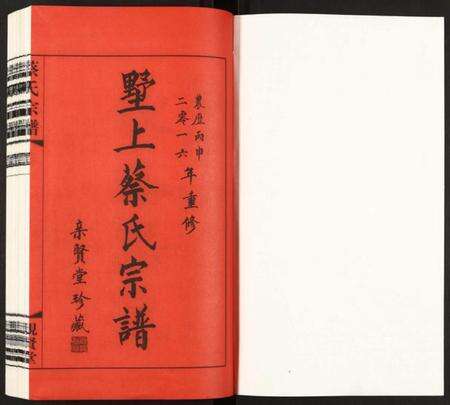 農历丙申
二零一六年重修
墅上蔡氏宗譜
亲賢堂珍藏
蔡氏宗譜
親賢堂